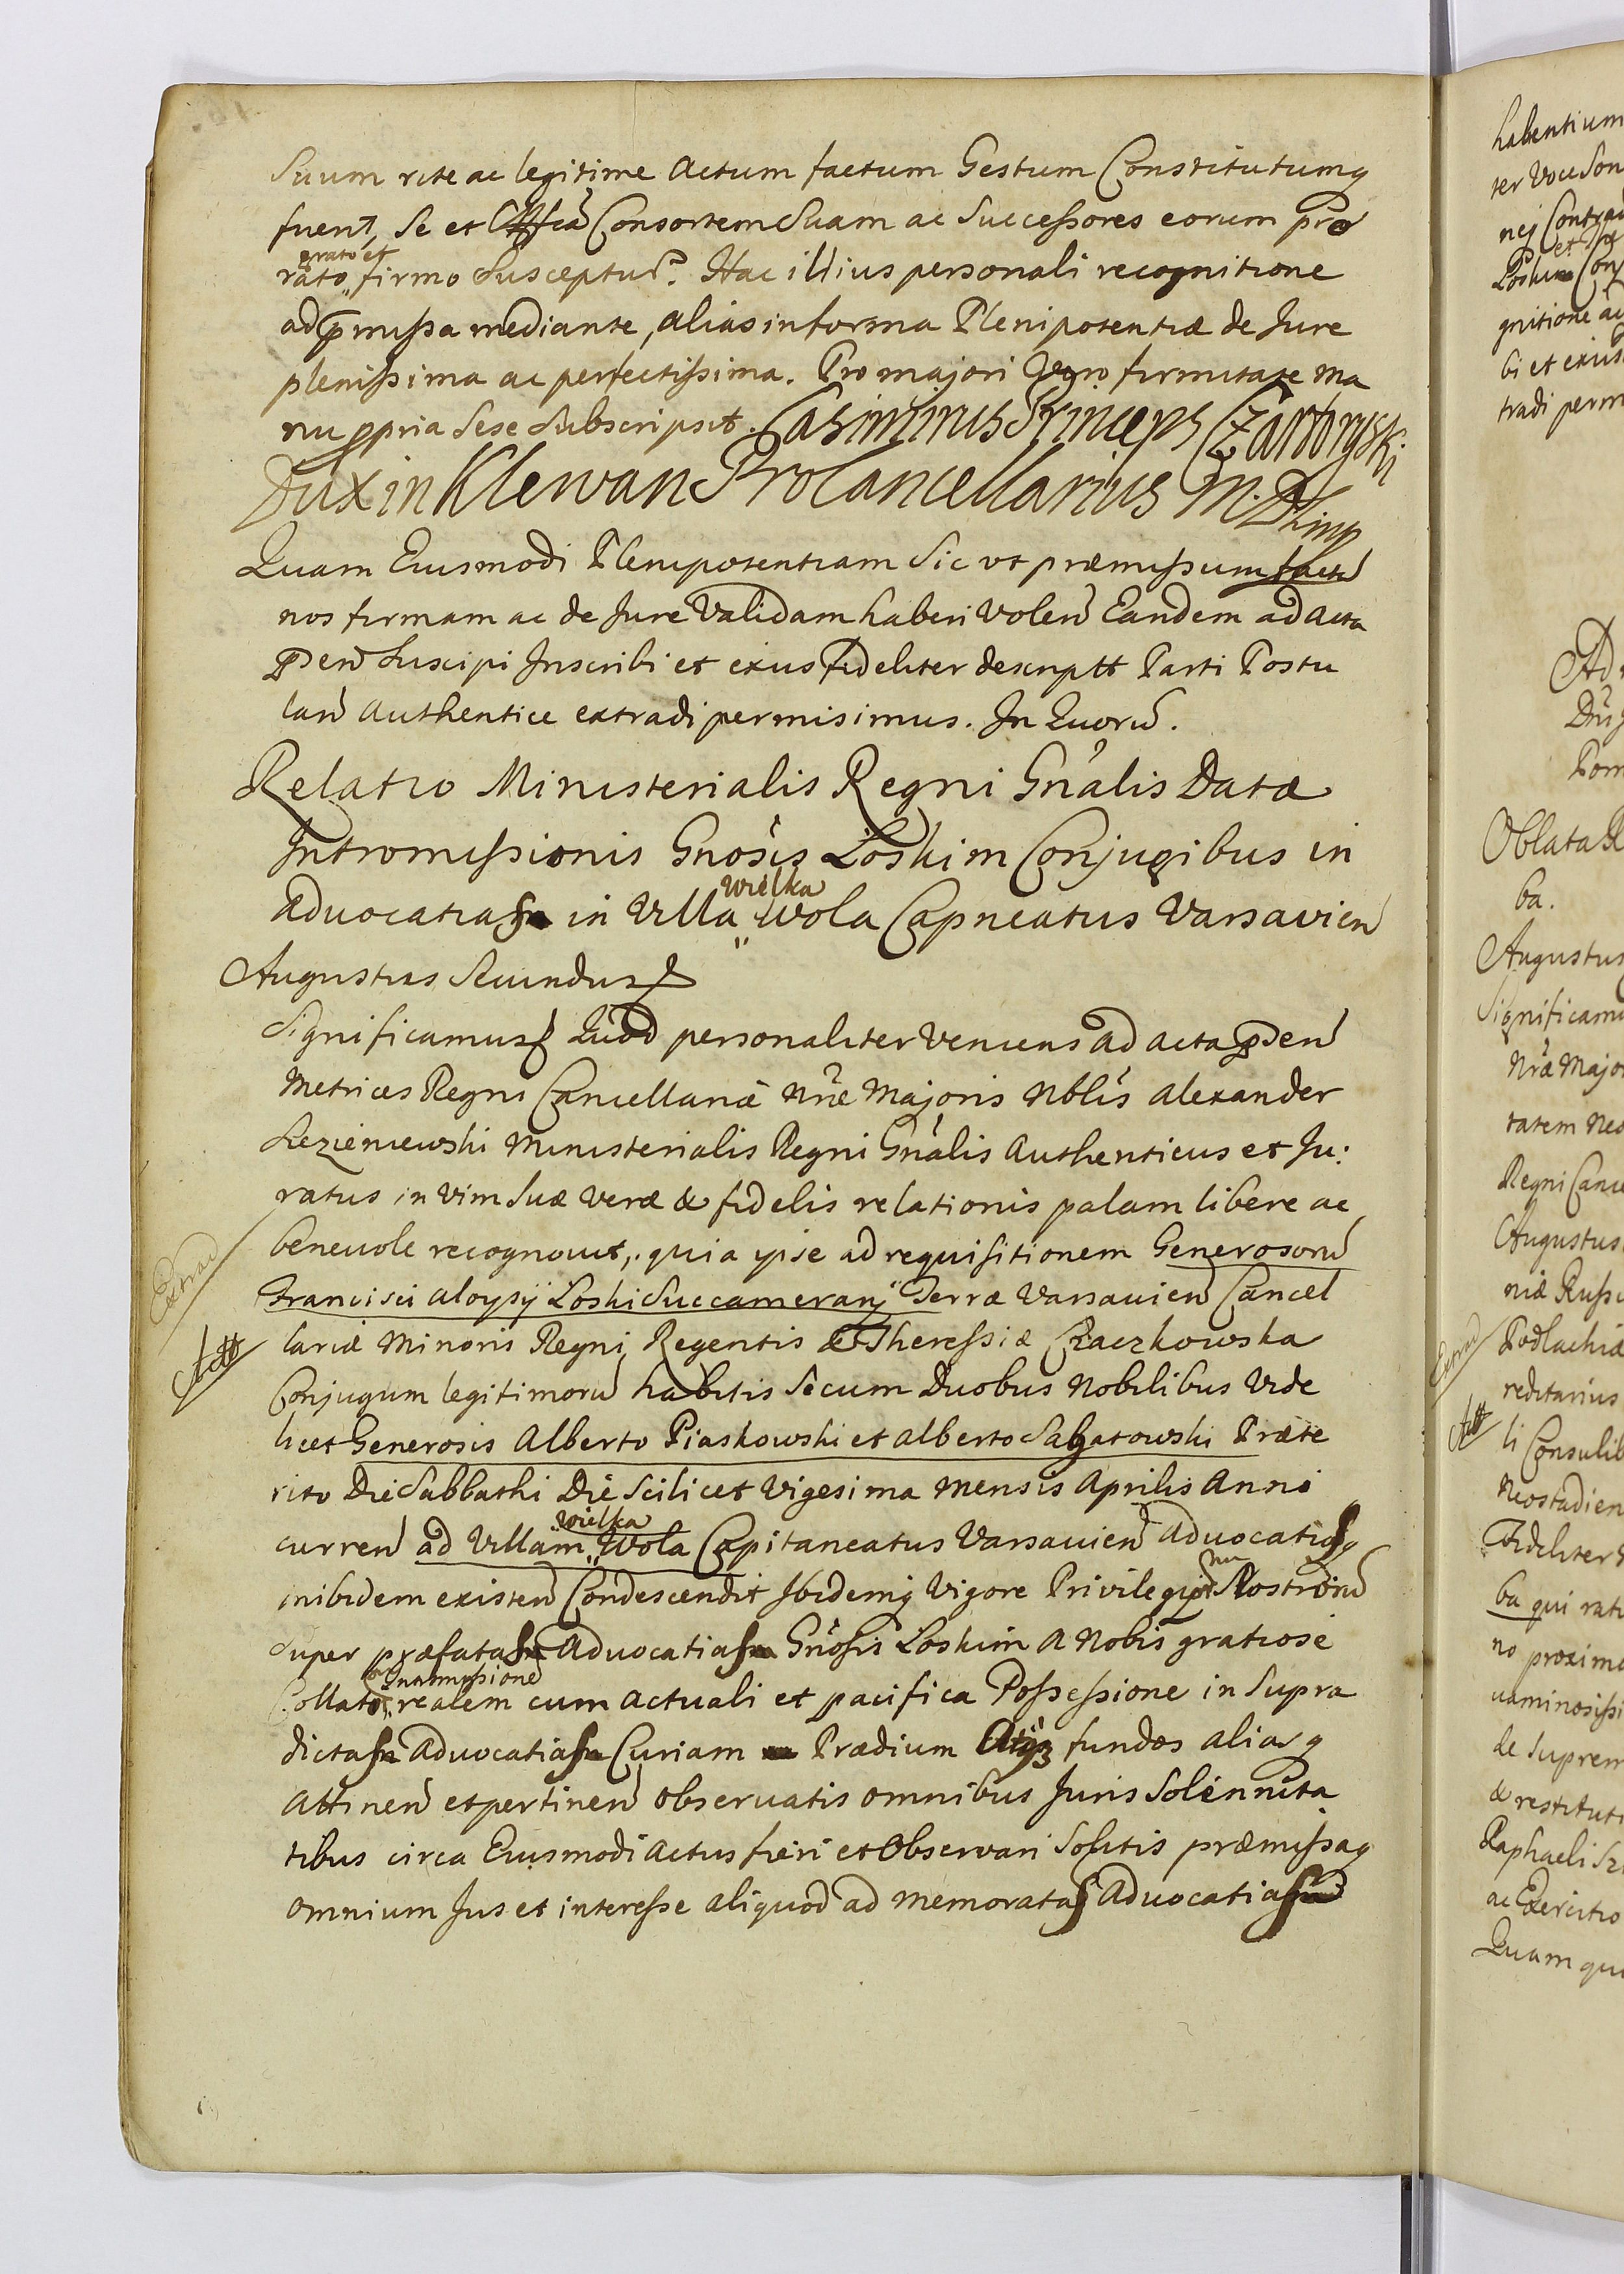 Suum rite ac legitime actum factum Gestum Constitutumq
fuerit, Se et Consortem Suam ac Successores eorum pro
grato et
rato firmo Suscepturũ. Hac illius personali recognitione
ad p̃missa mediante, alias in forma Plenipotentiæ de Jure
plenissima ac perfectissima. Pro majori vero firmitate ma
nu ppria Sese Subscripsit. Casimirus Princeps Czartoryski
Dux in Klewan ProCancellarius M. D. Lit mp
Quam Eiusmodi Plenipotentiam Sic vt præmissum
nos firmam ac de Jure Validam haberi Volen̄ Eandem ad acta
p̃sen̄ Suscipi Inscribi et exius fideliter descriptt Parti Postu
lan̄ authentice extradi permisimus. In Quorũ.
Relatio Ministerialis Regni Gn̄alis Datæ
Intromissionis Gn̄osis Loskim Conjugibus in
wielka
advocatias in Villa Wola Capneatus Varsavien̄
Augustus Secundus
Significamus Quod personaliter veniens ad acta p̃sen̄
Metrices Regni Cancellariæ Nr̄æ Majoris Nbl̄is Alexander
Lezieniewski Ministerialis Regni Gn̄alis Authenticus et Ju:
ratus in vim Suæ veræ & fidelis relationis palam libere ac
benevole recognovit, quia ipse ad requisitionem Generosorũ
Francisci Aloysij Loski Succamerarij Terræ Varsavien̄ Cancel
lariæ Minoris Regni Regentis et Theressiæ Czaczkowska
Conjugum legitimorũ habitis Secum Duobus Nobilibus vide
licet Generosis Alberto Piaskowski et Alberto Præte
rito Die Sabbathi Die Scilicet Vigesima Mensis Aprilis Anni
wielka
curren̄ ad Villam Wola Capitaneatus Varsavien̄ advocatias
inibidem existen̄ Condescendit Ibidemq vigore Privilegiorũ Nostrorũ
Super præfatas Advocatias Gn̄osis Loskim a Nobis gratiose
Collato realem cum actuali et pacifica Possessione in Supra
dictas advocatias Curiam Prædium fundos aliasq
attinen̄ et pertinen̄ observatis omnibus Juris Solennita
tibus circa Eiusmodi actus fieri et Observari Solitis præmissaq
omnium Jus et interesse aliquod ad memoratas advocatias
Extrad
Actt
habentium
ter Voce Son
nej Contra
Loskim Con
gnitione ac
bi et exius
tradi perm
Ad
Dn̄s
Pom
Oblata
ba.
Augustus
Significam
Nr̄æ Major
tatem Neo
Regni Cance
Augustus
niæ Russi
Podlachiæ
reditarius
li Consulib
Neostadien
Fideliter
ba qui rati
no proxima
uaminosissi
de Suprem
& restituti
Raphaeli Sz
ac Exercitio
Quam qui
Extrad
Actt